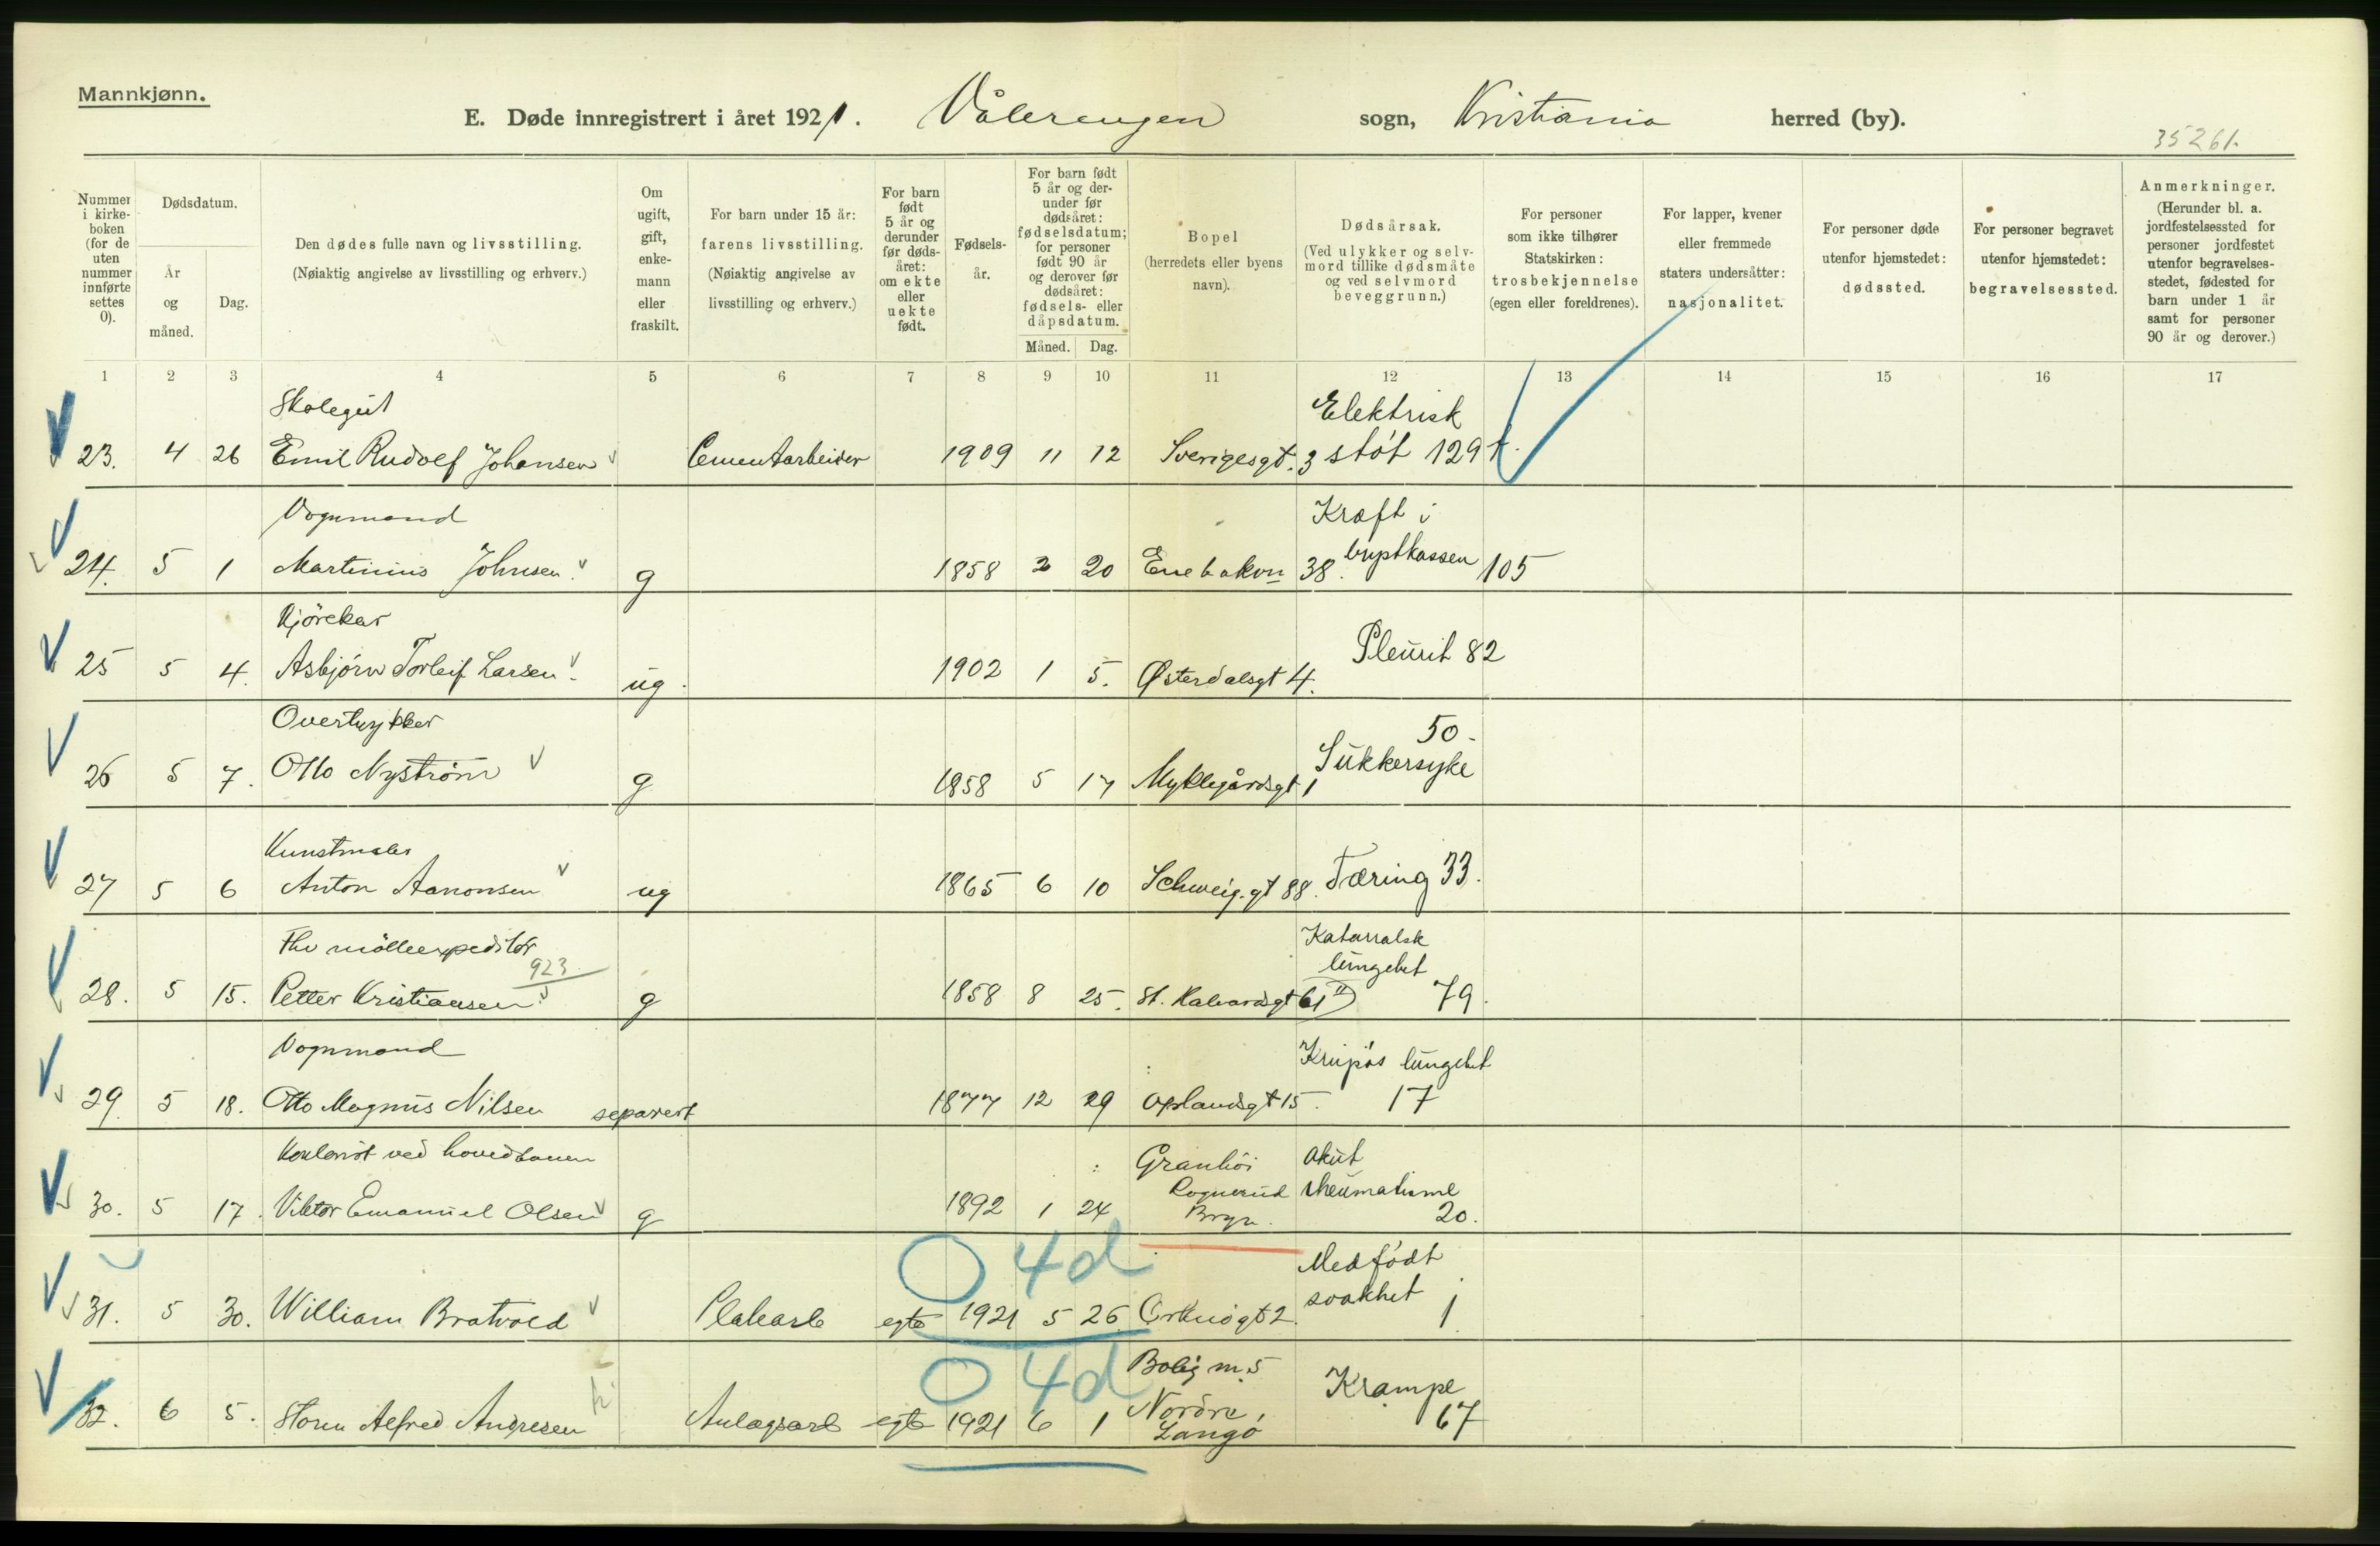 Mannkjønn.
E. Døde innregistrert i året 1921. Vålerengen sogn, Kristiania herred (by).
35261.
Nummer i kirke-boken (for de uten nummer innførte settes 0).
Dødsdatum.
År og måned.
Dag.
Den dødes fulle navn og livsstilling.
(Nøiaktig angivelse av livsstilling og erhverv.)
Om ugift, gift, enke-mann eller fraskilt.
For barn under 15 år:
farens livsstilling.
(Nøiaktig angivelse av livsstilling og erhverv.)
For barn født 5 år og derunder før døds-året: om ekte eller uekte født.
Fødsels-år.
For barn født 5 år og der-under før dødsåret: fødselsdatum; for personer født 90 år og derover før dødsåret: fødsels- eller dåpsdatum.
Måned. Dag.
Bopel
(herredets eller byens navn).
Dødsårsak.
(Ved ulykker og selv-mord tillike dødsmåte og ved selvmord beveggrunn.)
For personer som ikke tilhører Statskirken:
trosbekjennelse
(egen eller foreldrenes).
For lapper, kvener eller fremmede staters undersåtter:
nasjonalitet.
For personer døde utenfor hjemstedet:
dødssted.
For personer begravet utenfor hjemstedet:
begravelsessted.
Anmerkninger.
(Herunder bl. a. jordfestelsessted for personer jordfestet utenfor begravelses-stedet, fødested for barn under 1 år samt for personer 90 år og derover.)
1 2 3 4 5 6 7 8 9 10 11 12 13 14 15 16 17
Skolegut Elektrisk
23. 4 26 Emil Rudolf Johansen Cementarbeider 1909 11 12 Sverigesgt. 3 støt 129
Vognmand Kræft i
24. 5 1 Martinius Johnsen g 1858 2 20 Enebakvn 38. brystkassen 105
Kjørekar
25 5 4. Asbjørn Torleif Larsen ug. 1902 1 5. Østerdalsgt 4. Pleurit 82
Overtrykker 50-
26 5 7. Otto Nystrøm g 1858 5 17 Myklegårdsgt 1 Sukkersyke
Kunstmaler
27 5 6 Anton Aanonsen ug 1865 6 10 Schweig.gt 88. Tæring 33.
Fhv mølleexpeditør Katarralsk
923 lungebet
28. 5 15. Petter Kristiansen g 1858 8 25. St. Halvardsgt 61 II 79.
Vognmand Krupøs lungebet
29. 5 18. Otto Magnus Nilsen separert 1877 12 29 Oplandsgt 15. 17
Kontorist ved hovedbanen Granhöi Akut
Rognerud rheumatisme
30. 5 17. Viktor Emanuel Olsen g 1892 1 24 Bryn. 20.
0 4d Medfødt
31. 5 30. William Bratvold Platearb egte 1921 5 26 Orknøgt 2. svakhet 1
0 4d Bolig m. 5 Krampe
32. 6 5. Alfred Andresen Anlægsarb egte 1921 6 1 Nordre 67
Langø